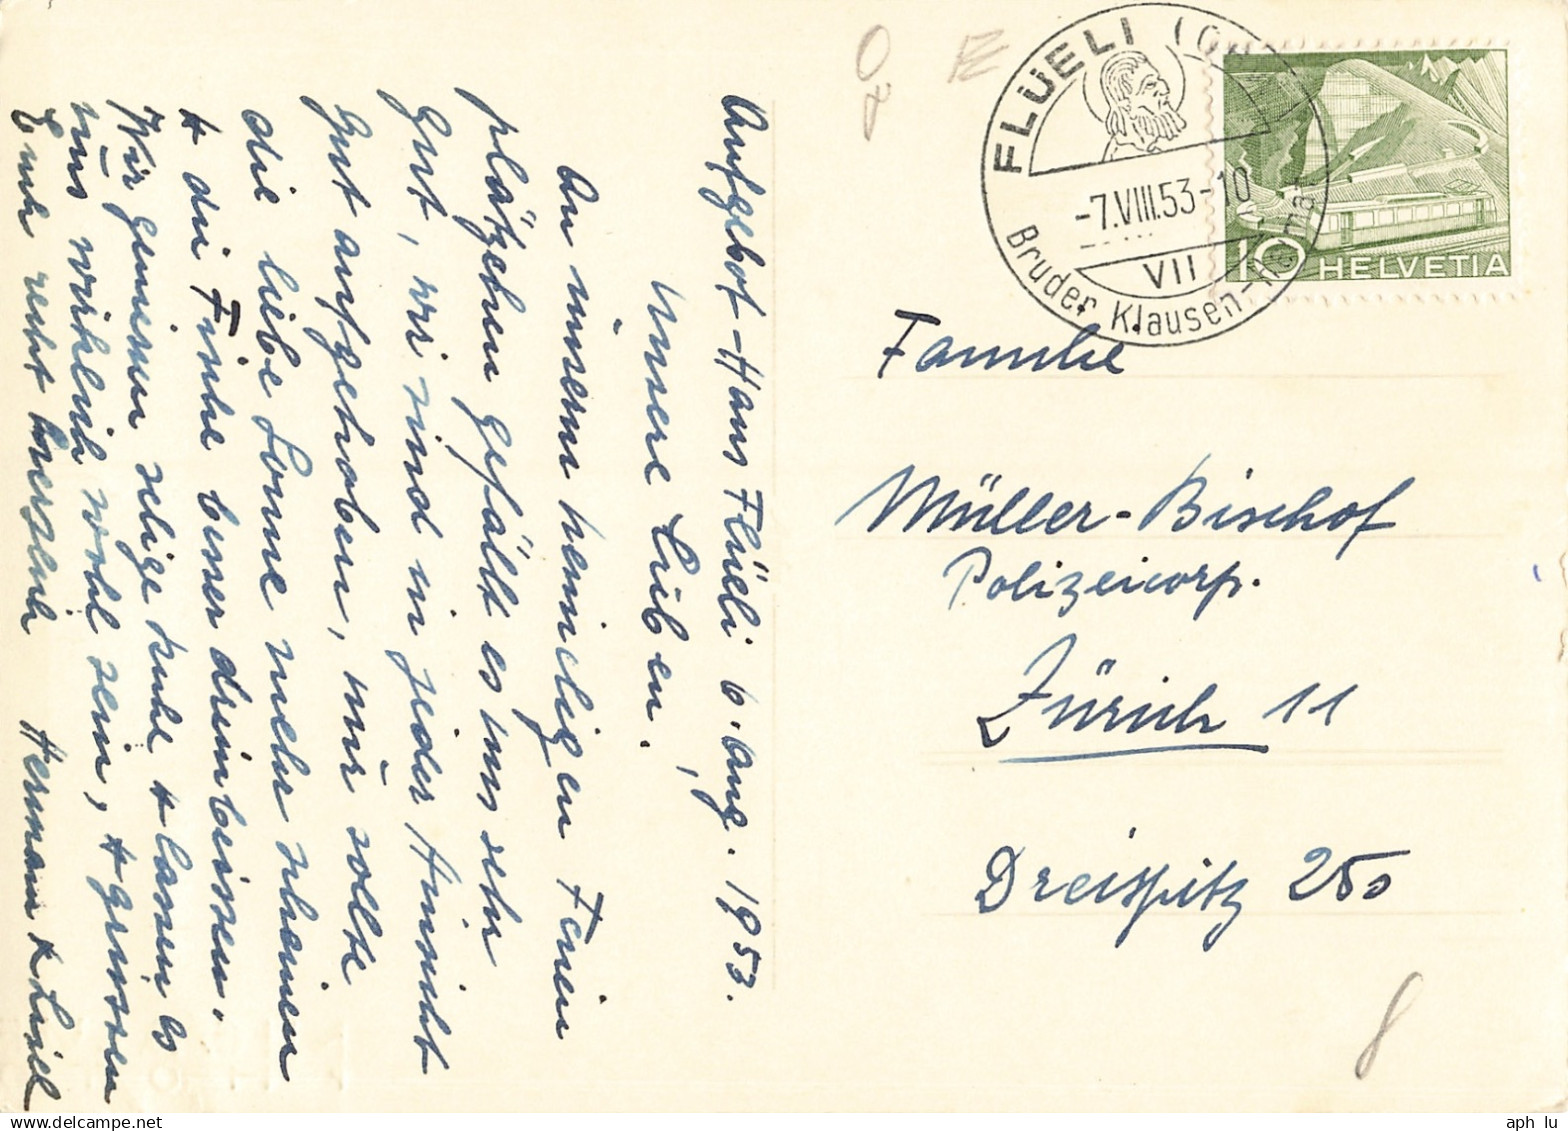 Aufgebot-Haus Flüeli 6. Aug. 1953.
Unsere Lieben,
An unserm heimeligen Ferien
plätzchen gefällt es uns sehr
gut, wir sind in jeder Hinsicht
gut aufgehoben, nur sollte
die liebe Sonne mehr scheinen
+ die Fische besser dreinbeissen.
Wir geniessen selige Ruhe + lassen es
uns wirklich wohl sein, + grüssen
Euch recht herzlich Hermann + Liseli
FLÜELI
-7.VIII.53-10
VII
Bruder Klausen-Heimat
10 HELVETIA
Familie
Müller-Bischof
Polizeicorp.
Zürich 11
Dreispitz 250
8
aph lu